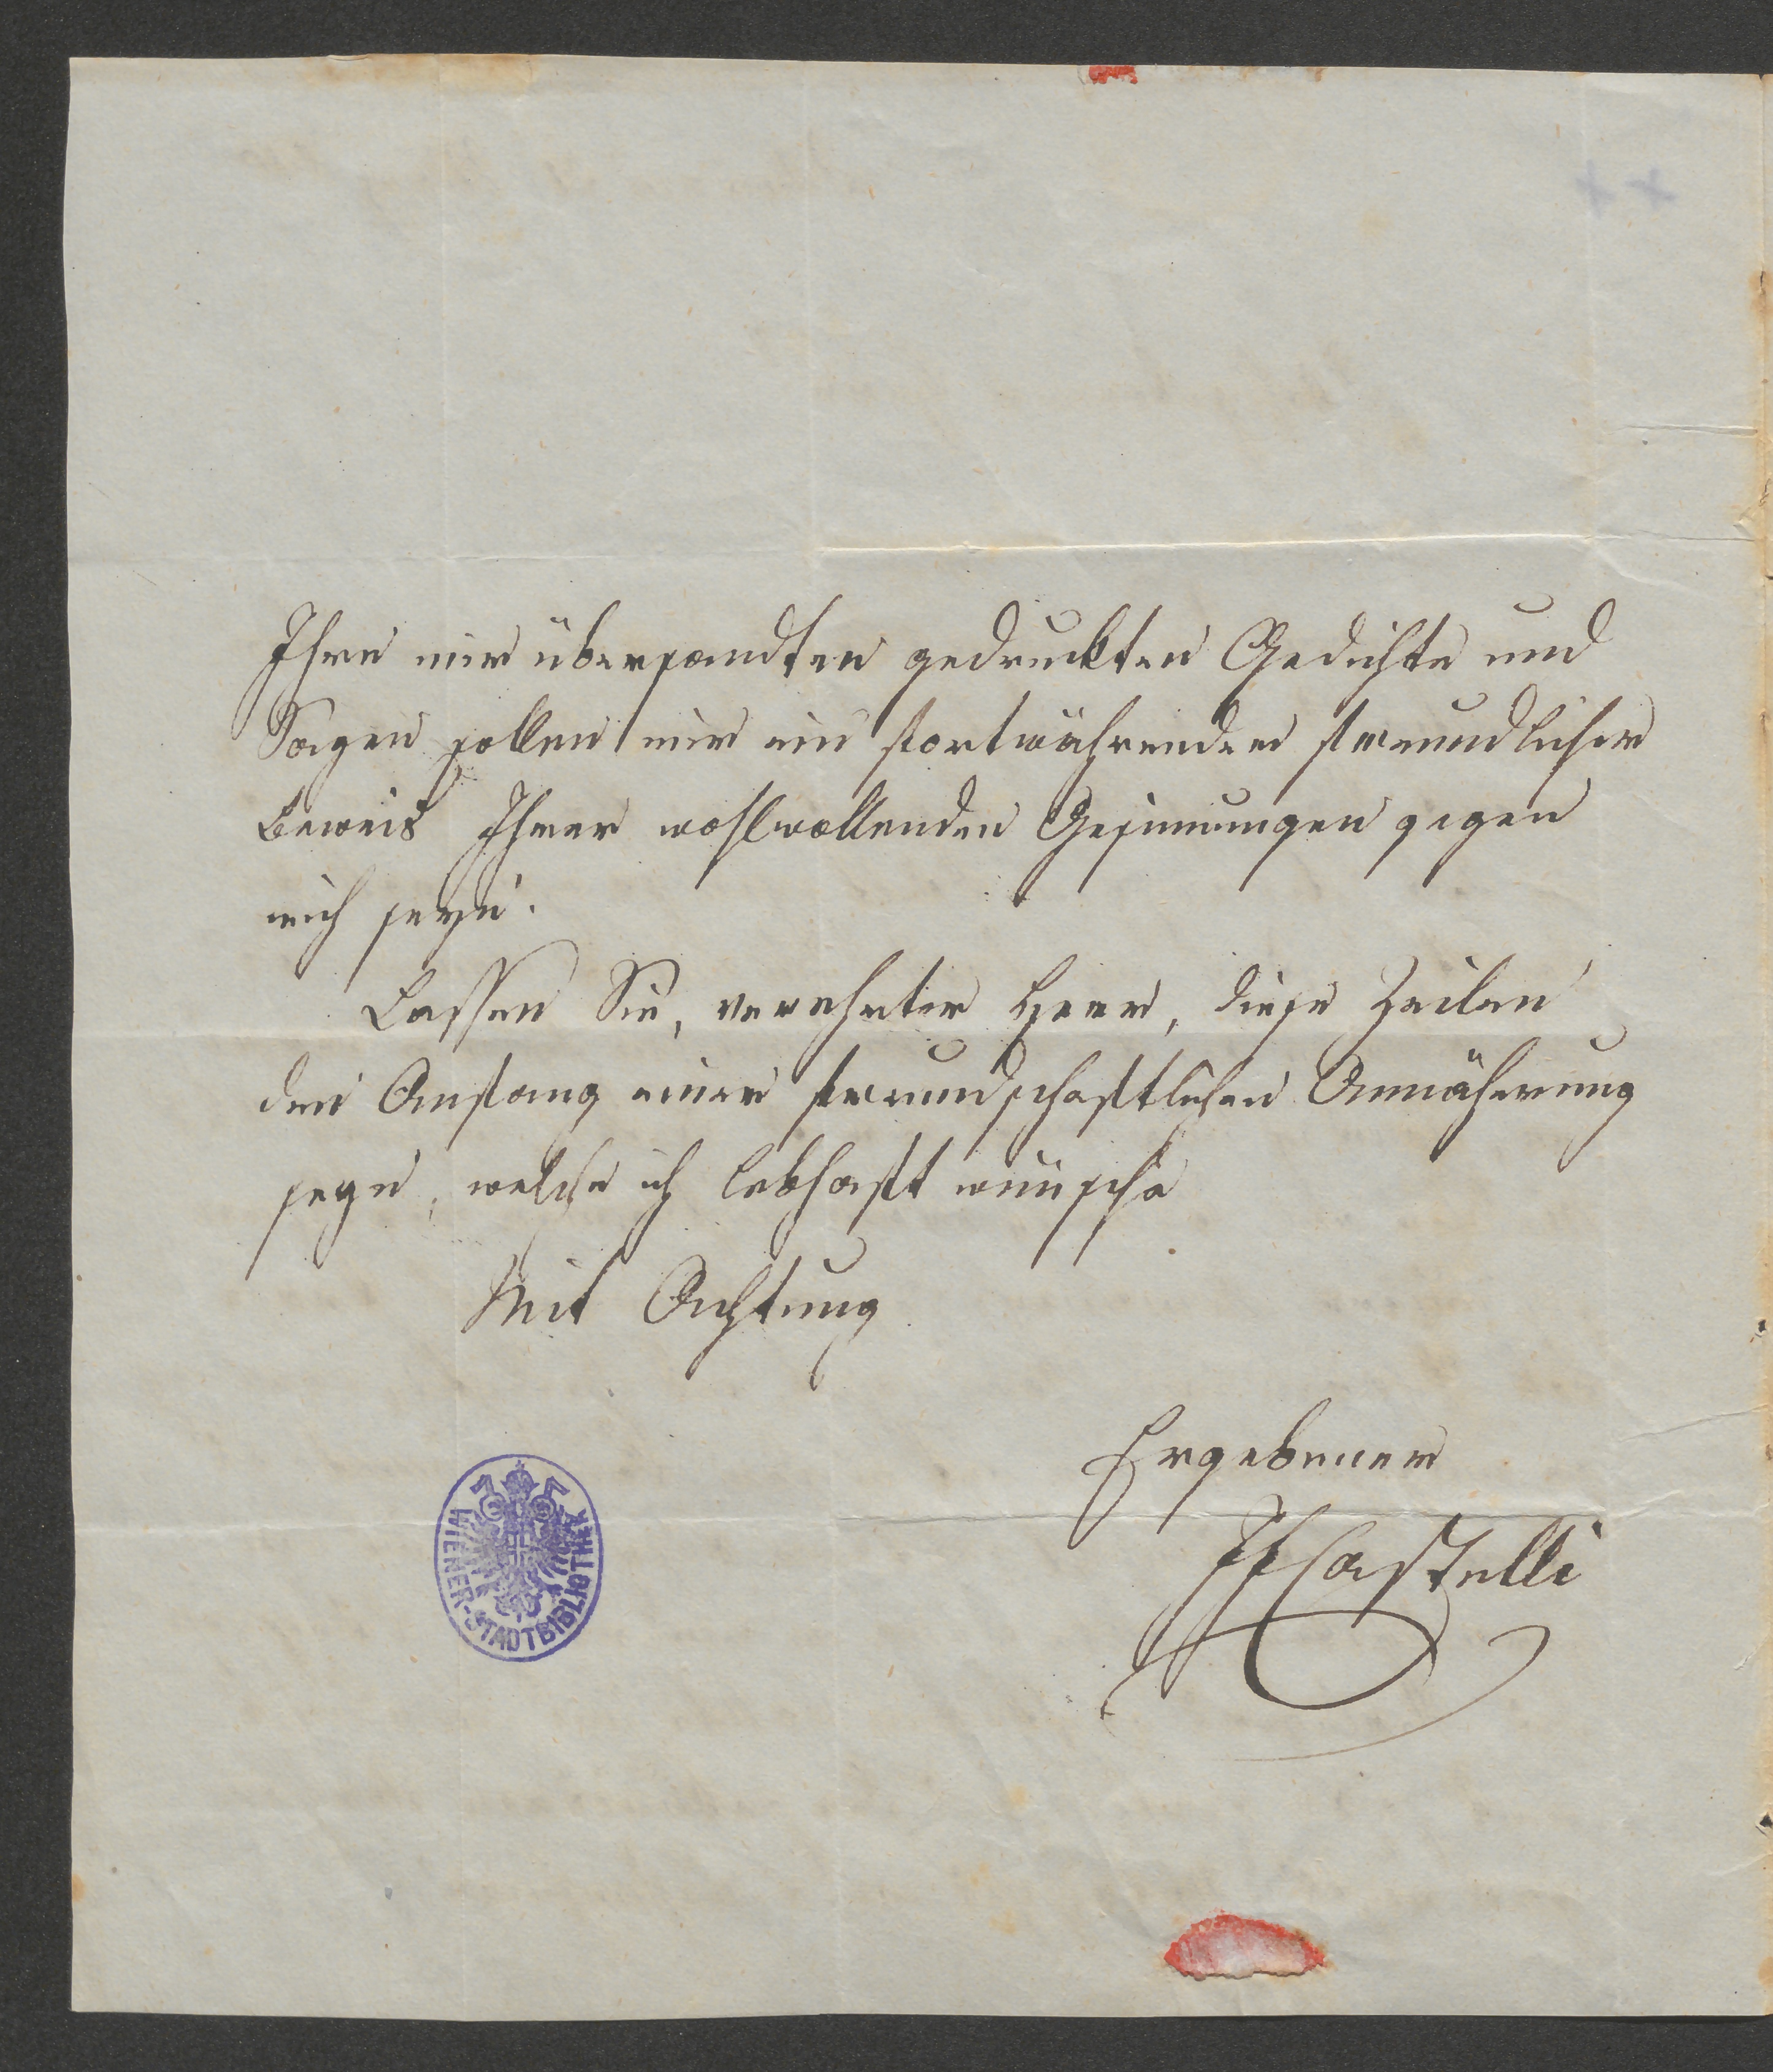 Ihre mir übersandten gedruckten Gedichte und
Sagen sollen mir ein fortwährender freundlicher
Beweis Ihrer wohlwollenden Gesinnungen gegen
mich seyn.
Lassen Sie, verehrter Herr, diese Zeilen
den Anfang einer freundschaftlichen Annäherung
seyn, welche ich lebhaft wünsche
Mit Achtung
Ergebener
IFCastelli
WIENER-STADTBIBLIOTHEK